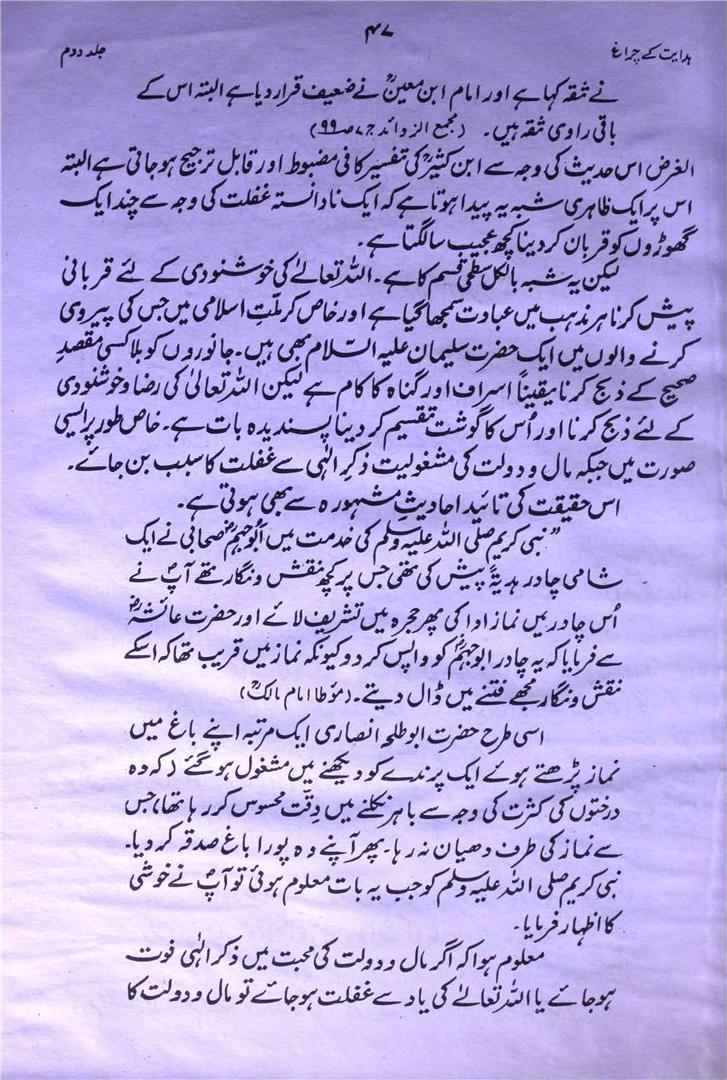 ۴۷
ہدایت کے چراغ
جلد دوم
نے ثقہ کہا ہے اور امام ابن معینؒ نے ضعیف قرار دیا ہے البتہ اس کے
باقی راوی ثقہ ہیں۔ (مجمع الزوائد ج۷ ص۹۹)
الغرض اس حدیث کی وجہ سے ابن کثیرؒ کی تفسیر کافی مضبوط اور قابل ترجیح ہو جاتی ہے البتہ
اس پر ایک ظاہری شبہ یہ پیدا ہوتا ہے کہ ایک نادانستہ غفلت کی وجہ سے چند ایک
گھوڑوں کو قربان کر دینا کچھ عجیب سا لگتا ہے۔
لیکن یہ شبہ بالکل سطحی قسم کا ہے۔ اللہ تعالےٰ کی خوشنودی کے لئے قربانی
پیش کرنا ہر مذہب میں عبادت سمجھا گیا ہے اور خاص کر ملّتِ اسلامی میں جس کی پیروی
کرنے والوں میں ایک حضرت سلیمان علیہ السّلام بھی ہیں۔ جانوروں کو بلا کسی مقصدِ
صحیح کے ذبح کرنا یقیناً اسراف اور گناہ کا کام ہے لیکن اللہ تعالیٰ کی رضا و خوشنودی
کے لئے ذبح کرنا اور اُس کا گوشت تقسیم کر دینا پسندیدہ بات ہے۔ خاص طور پر ایسی
صورت میں جبکہ مال و دولت کی مشغولیت ذکرِ الٰہی سے غفلت کا سبب بن جائے۔
اس حقیقت کی تائید احادیثِ مشہورہ سے بھی ہوتی ہے۔
"نبی کریم صلی اللہ علیہ وسلم کی خدمت میں ابُوجہمؓ صحابی نے ایک
شامی چادر ہدیۃً پیش کی تھی جس پر کچھ نقش و نگار تھے آپؐ نے
اُس چادر میں نماز ادا کی پھر حجرہ میں تشریف لائے اور حضرت عائشہؓ
سے فرمایا کہ یہ چادر ابوجہمؓ کو واپس کر دو کیونکہ نماز میں قریب تھا کہ اسکے
نقش و نگار مجھے فتنے میں ڈال دیتے۔ (مؤطا امام مالکؒ)
اسی طرح حضرت ابوطلحہ انصاری ایک مرتبہ اپنے باغ میں
نماز پڑھتے ہوئے ایک پرندے کو دیکھنے میں مشغول ہو گئے (کہ وہ
درختوں کی کثرت کی وجہ سے باہر نکلنے میں دِقّت محسوس کر رہا تھا، جس
سے نماز کی طرف دھیان نہ رہا۔ پھر آپنے وہ پورا باغ صدقہ کر دیا۔
نبی کریم صلی اللہ علیہ وسلم کو جب یہ بات معلوم ہوئی تو آپؐ نے خوشی
کا اظہار فرمایا۔
معلوم ہوا کہ اگر مال و دولت کی محبت میں ذکر الٰہی فوت
ہو جائے یا اللہ تعالےٰ کی یاد سے غفلت ہو جائے تو مال و دولت کا